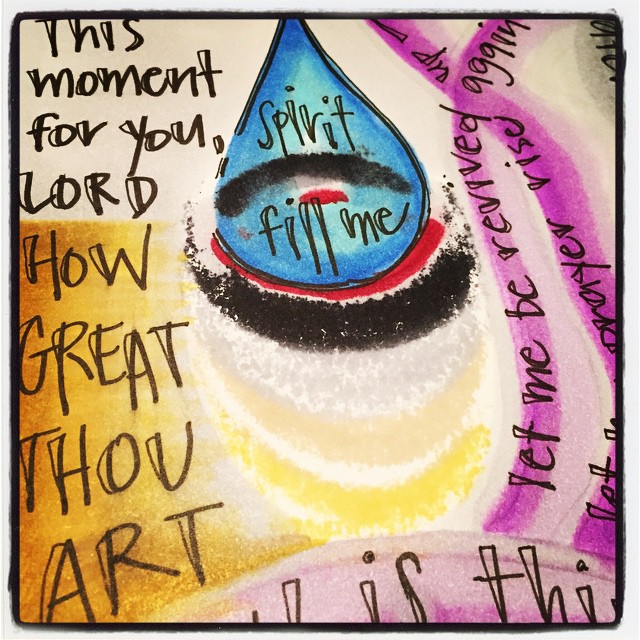 This
moment
for you,
LORD
HOW
GREAT
THOU
ART
spirit
fill me
let me be revived again
prayer rise up
is thi